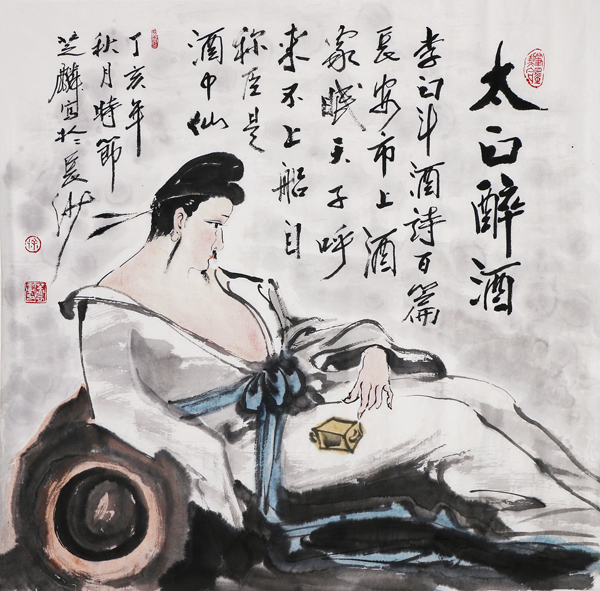 太白醉酒
李白斗酒詩百篇
長安市上酒
家眠天子呼
来不上船自
称臣是
酒中仙
丁亥年
秋月時節
芝麟寫於長沙